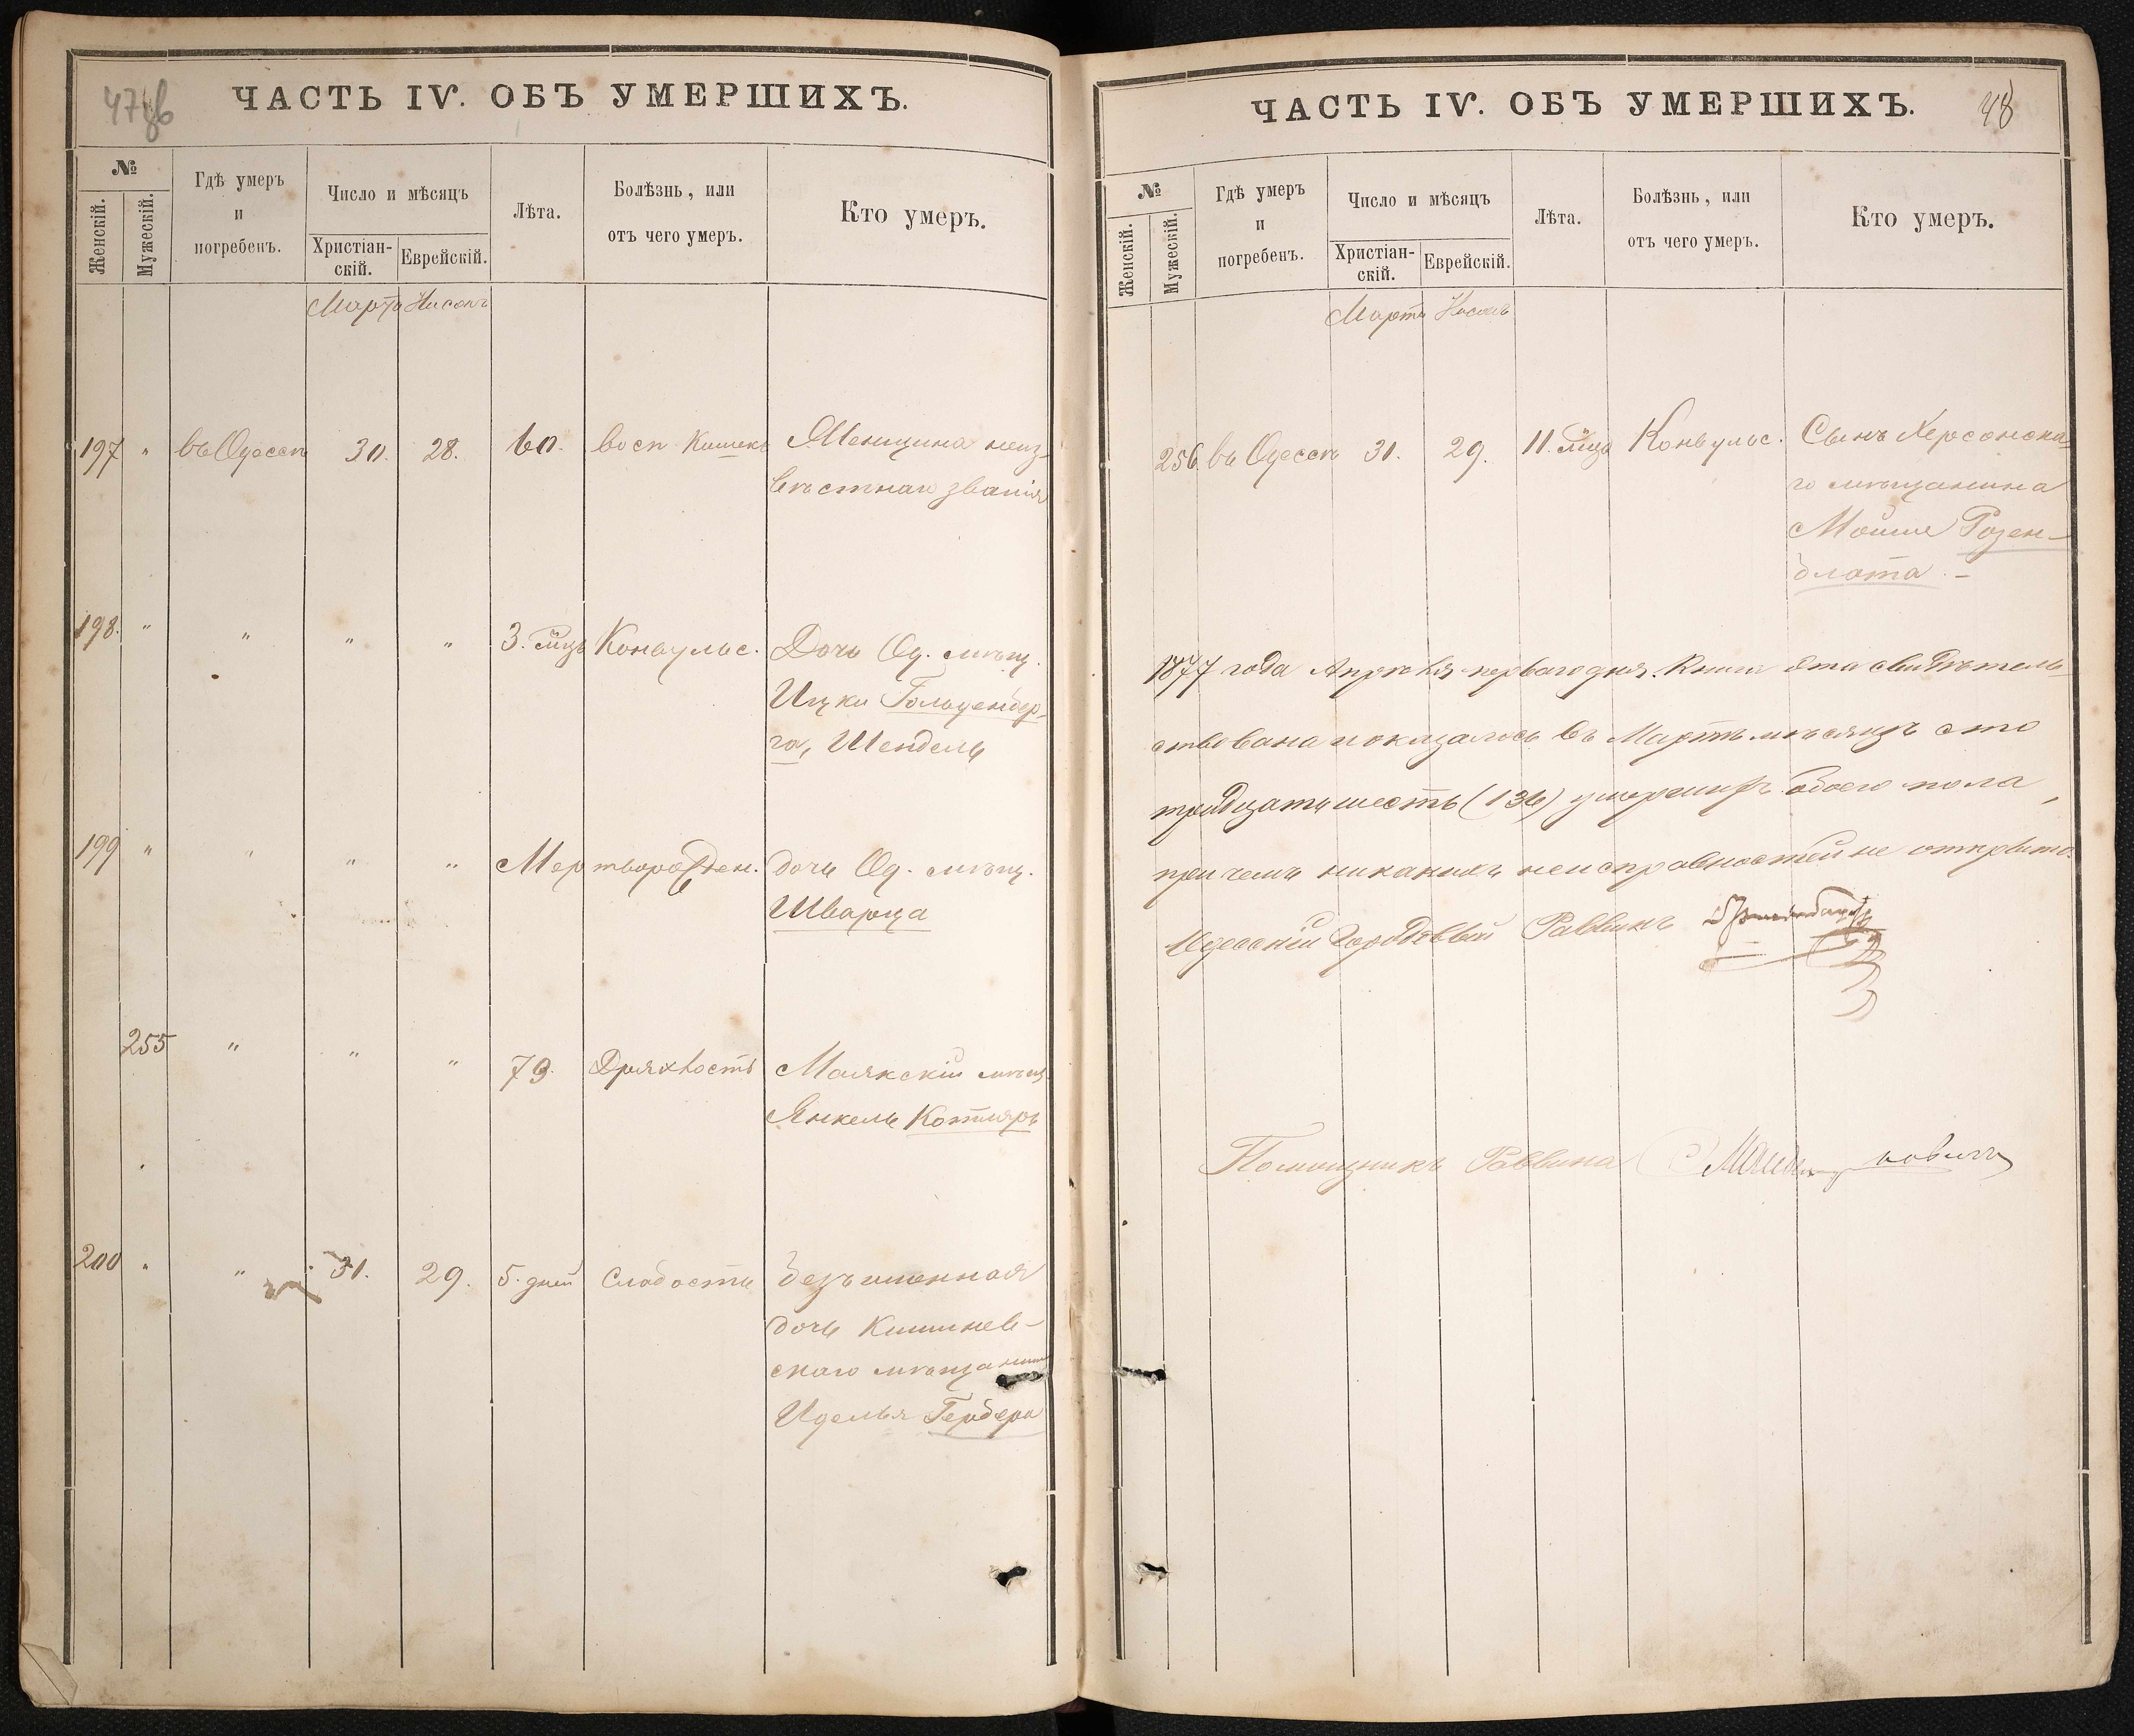 47об
ЧАСТЬ IV. ОБЪ УМЕРШИХЪ.
№
Женскій.
Мужескій.
Гдѣ умеръ
и
погребенъ.
Число и мѣсяцъ
Христіан-
скій.
Еврейскій.
Лѣта.
Болѣзнь, или
отъ чего умеръ.
Кто умеръ.
Мартъ Нисонъ
197 " въ Одессѣ 30. 28. 60. восп. Кишекъ Женщина неиз-
вѣстнаго званія
198. " " " " 3. мцъ Конвульс. Дочь Од. мѣщ.
Ицки Гольденбер-
га, Шендель
199 " " " " Мертворожден. дочь Од. мѣщ.
Шварца
255 " " " 79. Дряхлость Маякскій мѣщ.
Янкель Котляръ
200 " " 31. 29. 5. дней Слабость безъименная
дочь Кишинев-
скаго мѣщанина
Иделья Гербера
ЧАСТЬ IV. ОБЪ УМЕРШИХЪ.
48
№
Женскій.
Мужескій.
Гдѣ умеръ
и
погребенъ.
Число и мѣсяцъ
Христіан-
скій.
Еврейскій.
Лѣта.
Болѣзнь, или
отъ чего умеръ.
Кто умеръ.
Мартъ Нисонъ
256. въ Одессѣ 31. 29. 11. мцъ Конвульс. Сынъ Херсонска-
го мѣщанина
Мошие Розен-
блата. –
1877 года Апрѣля перваго дня. Книга эта свидѣтель-
ствована и оказалось въ Мартѣ мѣсяцѣ сто
тридцать шесть (136) умершихъ обоего пола,
при чемъ никакихъ неисправностей не открыто.
Одесскій Городовый Раввинъ
Помощникъ Раввина